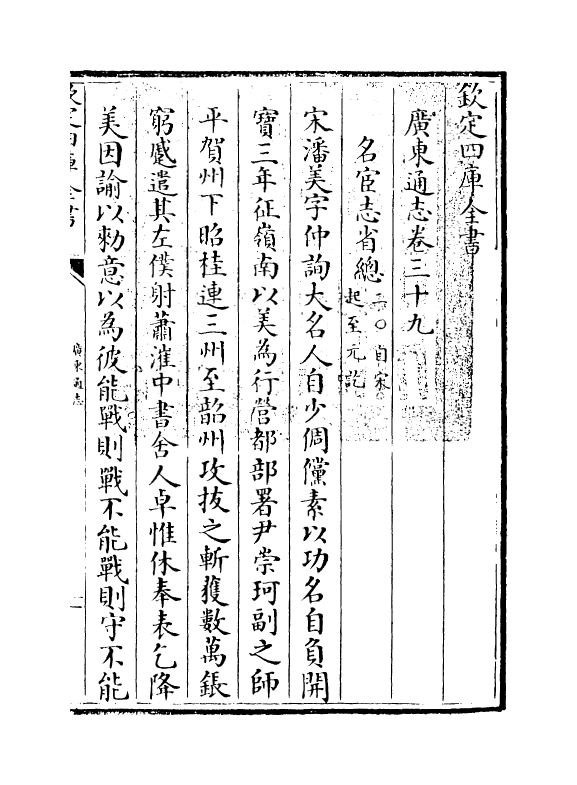 欽定四庫全書
廣東通志卷三十九
名宦志省總二〇自宋起至元訖
宋潘美字仲詢大名人自少倜儻素以功名自負開
寶三年征嶺南以美為行營都部署尹崇珂副之師
平賀州下昭桂連三州至韶州攻拔之斬獲數萬鋹
窮蹙遣其左僕射蕭漼中書舍人卓惟休奉表乞降
美因諭以勅意以為彼能戰則戰不能戰則守不能
欽定四庫全書
廣東通志
一